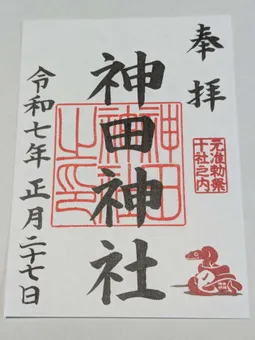 奉拝
元准勅祭
十社之内
神田神社
神田
神社
之印
令和七年正月二十七日